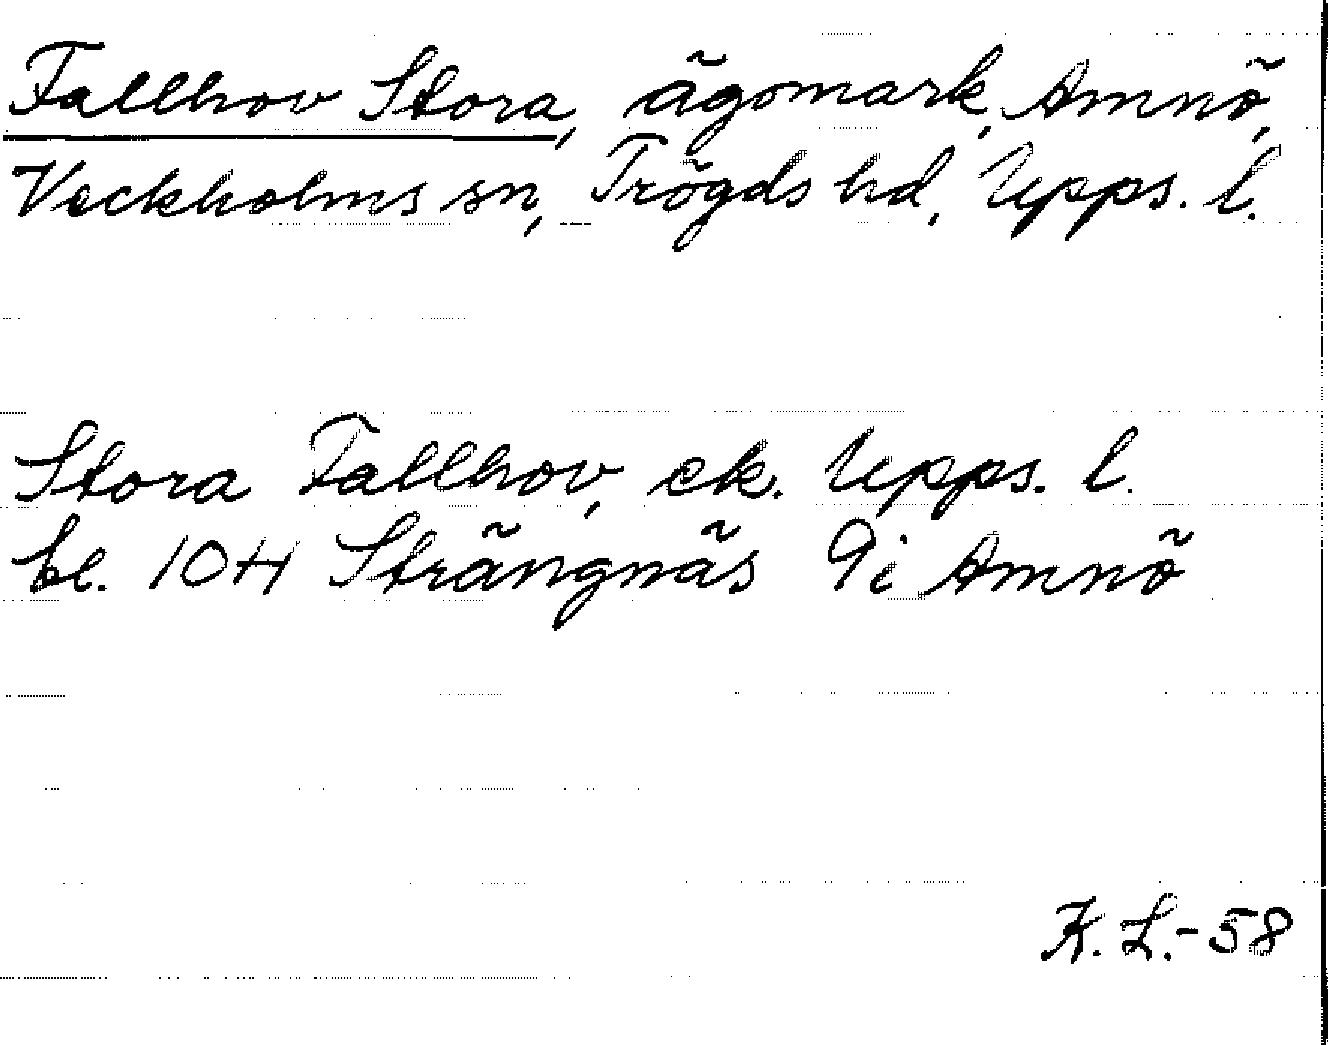 Fallhov Stora, ägomark, Amnö,
Veckholms sn, Trögds hd, Upps. l.
Stora Fallhov, ek. Upps. l.
bl. 10H Strängnäs 9i Amnö
K. L.-58